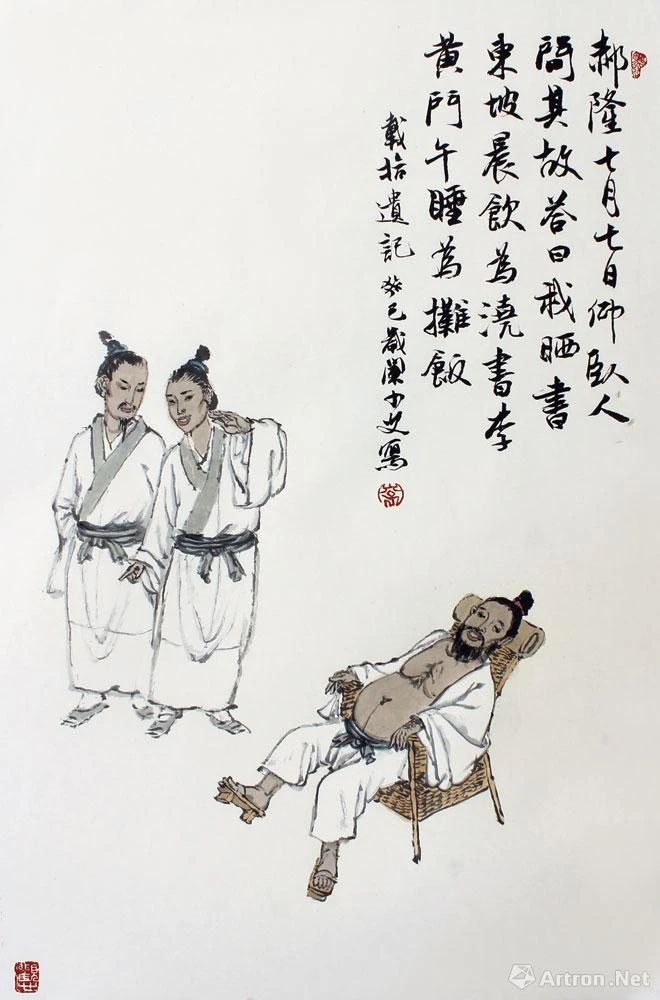 郝隆七月七日仰臥人
問其故答曰我晒書
東坡晨飲為澆書李
黄門午睡為攤飯
載拾遺記 癸巳歲闌少文寫
Artron.Net